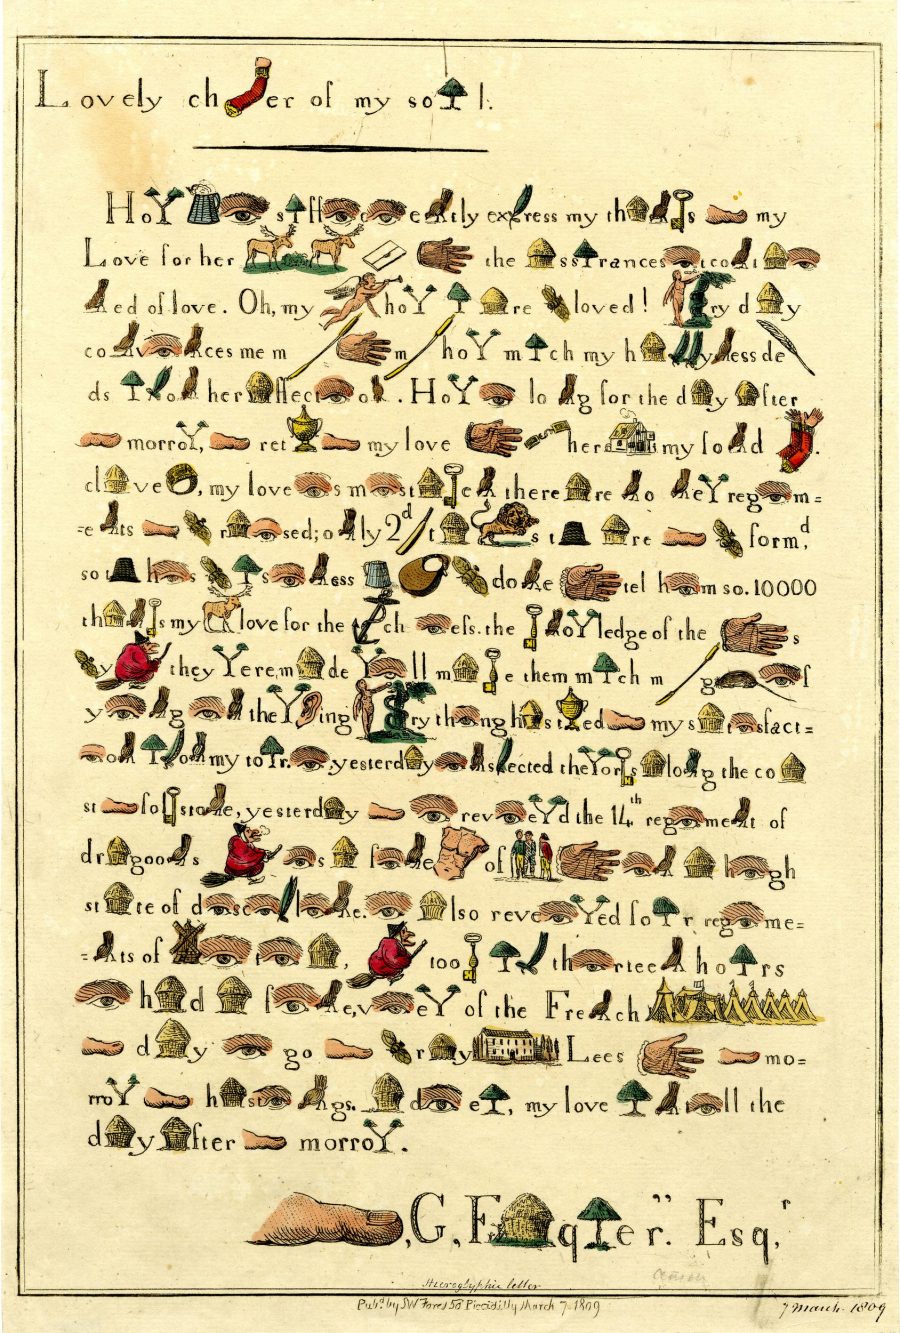 Lovely ch er of my so l.
HoY s ff c e tly ex ress my th s my
Love for her the ss rances t co t
ed of love. Oh, my hoY re loved! ry d y
co v ces me m m hoY m tch my h y less de
ds o her ffect o . HoY lo g for the d y fter
morroY, ret my love her my fo d .
cl ve , my love s m st e there re o eY reg m=
=e ts r sed; o ly 2d t s t re form,d
so t h s s ess do e tel h m so. 10000
th s my love for the ch efs. the oYledge of the s
y they Yere, m de Y ll m e them m tch m g f
y g the Y ing ry th ng h s t ed my s t sfact=
o o my to r. yesterd y s ected the Yor s lo g the co
st fol sto e, yesterd y rev eYd the 14th reg me t of
dr goo s s f e of h gh
st te of d sc l e. lso reve Yed fo r reg me=
=ts of t , too th rtee ho rs
h d f e, v eY of the Fre ch
d y go r y Lees mo=
rroY h st gs. d e , my love t ll the
d y fter morroY.
,G, F q er." Esq,r
Hieroglyphic letter
Pubd. by SW Fores 50 Piccidilly March 7 1809
7 March 1809